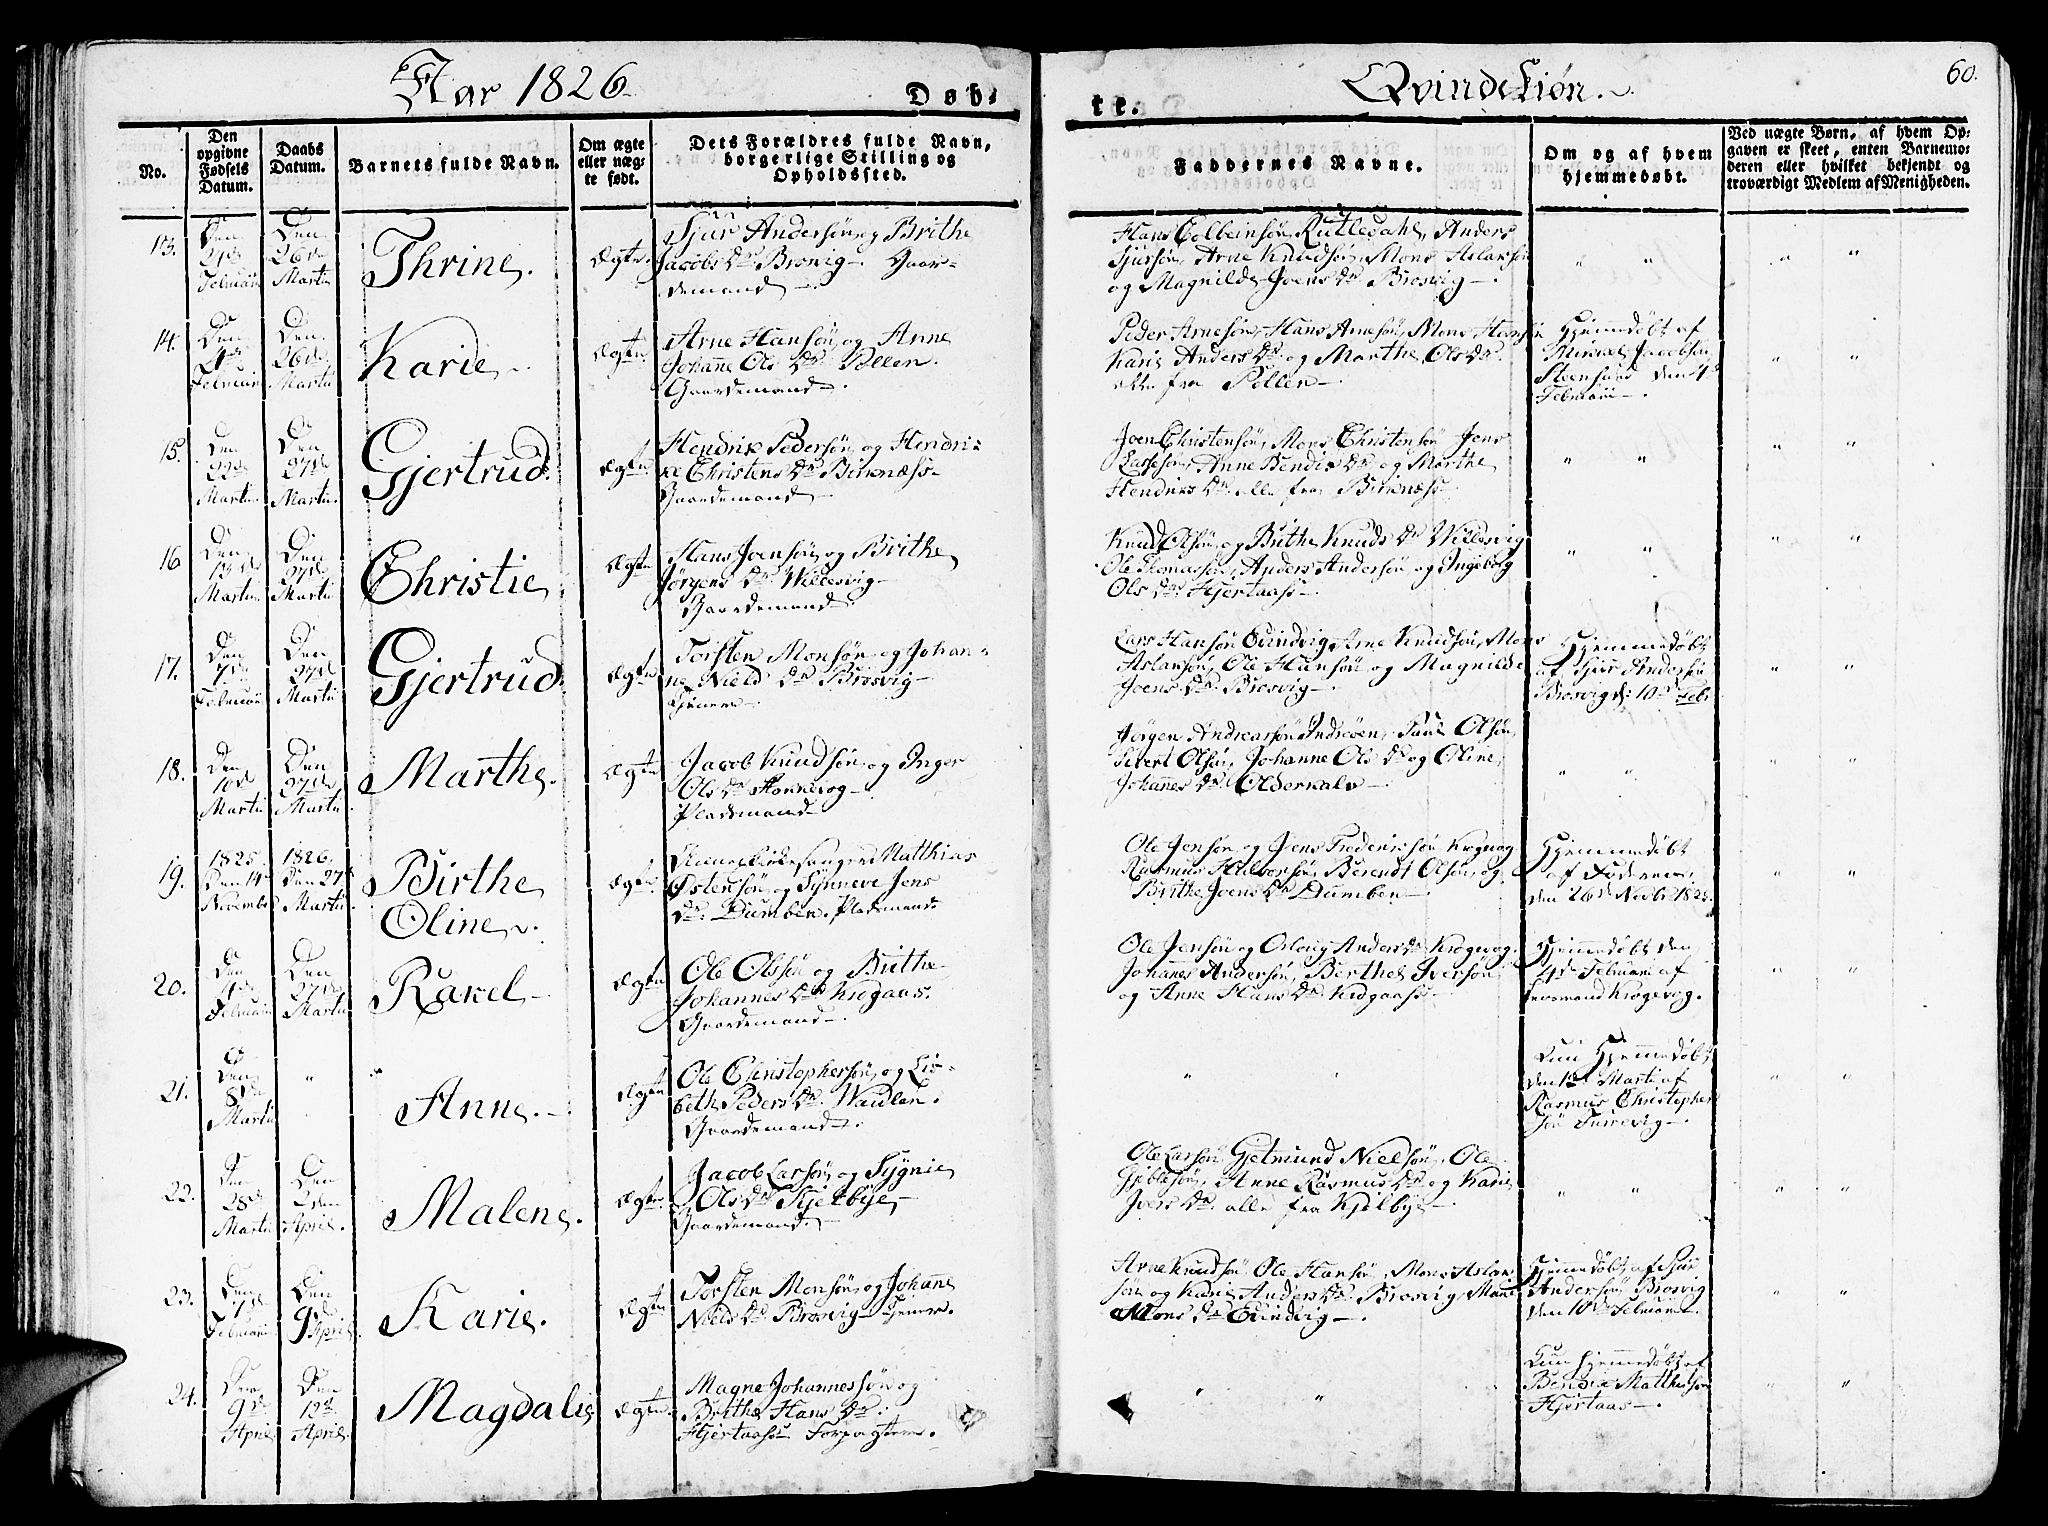 Aar 1826.
Døb-
te.
Qvindekiøn.
60.
No.
Den opgivne Fødsels Datum.
Daabs Datum.
Barnets fulde Navn.
Om ægte eller uægte født.
Dets Forældres fulde Navn, borgerlige Stilling og Opholdssted.
Faddernes Navne.
Om og af hvem hjemmedøbt.
Ved uægte Børn, af hvem Opgaven er skeet, enten Barnemoderen eller hvilket bekjendt og troværdigt Medlem af Menigheden.
13.
Den
Februarii
Den 26de Martii
Thrine.
Ægte.
Sjur Andersøn og Brithe
Jacobs Dr Brosvig. Gaar-
demand
Hans Colbeinsøn Rutledahl, Anders
Sjursøn, Arne Knudsøn, Mons Aslaksøn
og Magnilde Joens Dr Brosvig
14.
Den 4de Februarii
Den 26de Martii
Karie
Ægte
Arne Hansøn og Anne
Johanne Ols Dr Pollen.
Gaardemand.
Peder Arnesøn, Hans Arnesøn, Mons Hansøn
Karie Anders Dr og Marthe Ols Dr.
alle fra Pollen
Hjemmedøbt af
Mikkel Jacobsøn
Steensund den 4de
Februarii
15.
Den 22de Martii
Den 27de Martii
Gjertrud.
Ægte
Hendrik Pedersøn og Hendri-
ke Christens Dr Birknæss
Gaardemand
Joen Christensøn, Mons Christensøn Jens
Lassesøn, Anne Bendix Dr og Marthe
Hendriks Dr. alle fra Birknæss
16
Den 13de Martii
Den 27de Martii
Christie
Ægte
Hans Joensøn og Brithe
Jørgens Dr Willesvig
Gaardemand.
Knud Olsøn og Brithe Knuds Dr Willesvig
Ole Thomassøn, Anders Andersøn og Ingeborg
Ols Dr. Hjertaas
17.
Den 7de Februarii
Den 27de Martii
Gjertrud
Ægte
Torsten Monsøn og Johan-
ne Niels Dr Brosvig
Lars Hansøn Evindvig, Arne Knudsøn, Mons
Aslaksøn, Ole Hansøn og Magnilde
Joens Dr. Brosvig
Hjemmedøbt
af Sjur Andersøn
Brosvig d: 10de Febr
18.
Den 10de Martii
Den 27de Martii
Marthe.
Ægte
Jacob Knudsøn og Inger
Ols Dr
Pladsmand
Jørgen Andreassøn Indreøen, Paul Olsøn,
Sivert Olsøn, Johanne Ols Dr og Oline
Johannes Dr. Olderkalv
19.
1825. Den 14de November
1826. Den 27de Martii
Birthe
Oline
Ægte.
Matthias
Østensøn og Synneve Jens
Dr. Dumben. Pladsmand
Ole Jensøn og Jens Frederiksøn Krogvog
Rasmus Halvorsøn, Berendt Olsøn og
Brithe Joens Dr Dumben
Hjemmedøbt
af Faderen
den 26de Novbr 1825.
20.
Den 4de Februarii
Den 27de Martii
Rakel
Ægte
Ole Olssøn og Brithe
Johannes Dr
Gaardemand
Ole Jensøn og Anders Dr Krogevog.
Johannes Andersøn, Berthel Iversøn
og Anne Hans Dr.
Hjemmedøbt den
4de Februarii af
Krogevog.
21.
Den 8de Martii
Anne.
Ægte
Ole Christophersøn og Lis-
beth Peders Dr.
Gaardemand.
Kun Hjemmedøbt
den Marti af
Rasmus Christopher-
søn
22.
Den 28de Martii
Den 2den April.
Malene.
Ægte.
Jacob Larsøn og Sygnie
Ols Dr Kjelbye
Gaardemand.
Ole Larsøn Gjetmund Nielsøn, Ole
Anne Rasmus Dr og Karie
Ivers Dr. alle fra Kjelbye
23.
Den 7de Februarii
Den 9de April
Karie.
Ægte
Torsten Monsøn og Johanne
Niels Dr Brosvig
Arne Knudsøn Ole Hansøn, Mons Aslak-
søn og Karie Anders Dr Brosvig, Marie
Mons Dr Evindvig
Hjemmedøbt af Sjur
Andersøn Brosvig
den 10de Februarii
24.
Den 9de April
Den 12te April
Magdalie
Ægte.
Magne Johannessøn og
Brithe Hans Dr.
Hjertaas Forpagter
Kun hjemmedøbt af
Bendix Matthissøn
Hjertaas